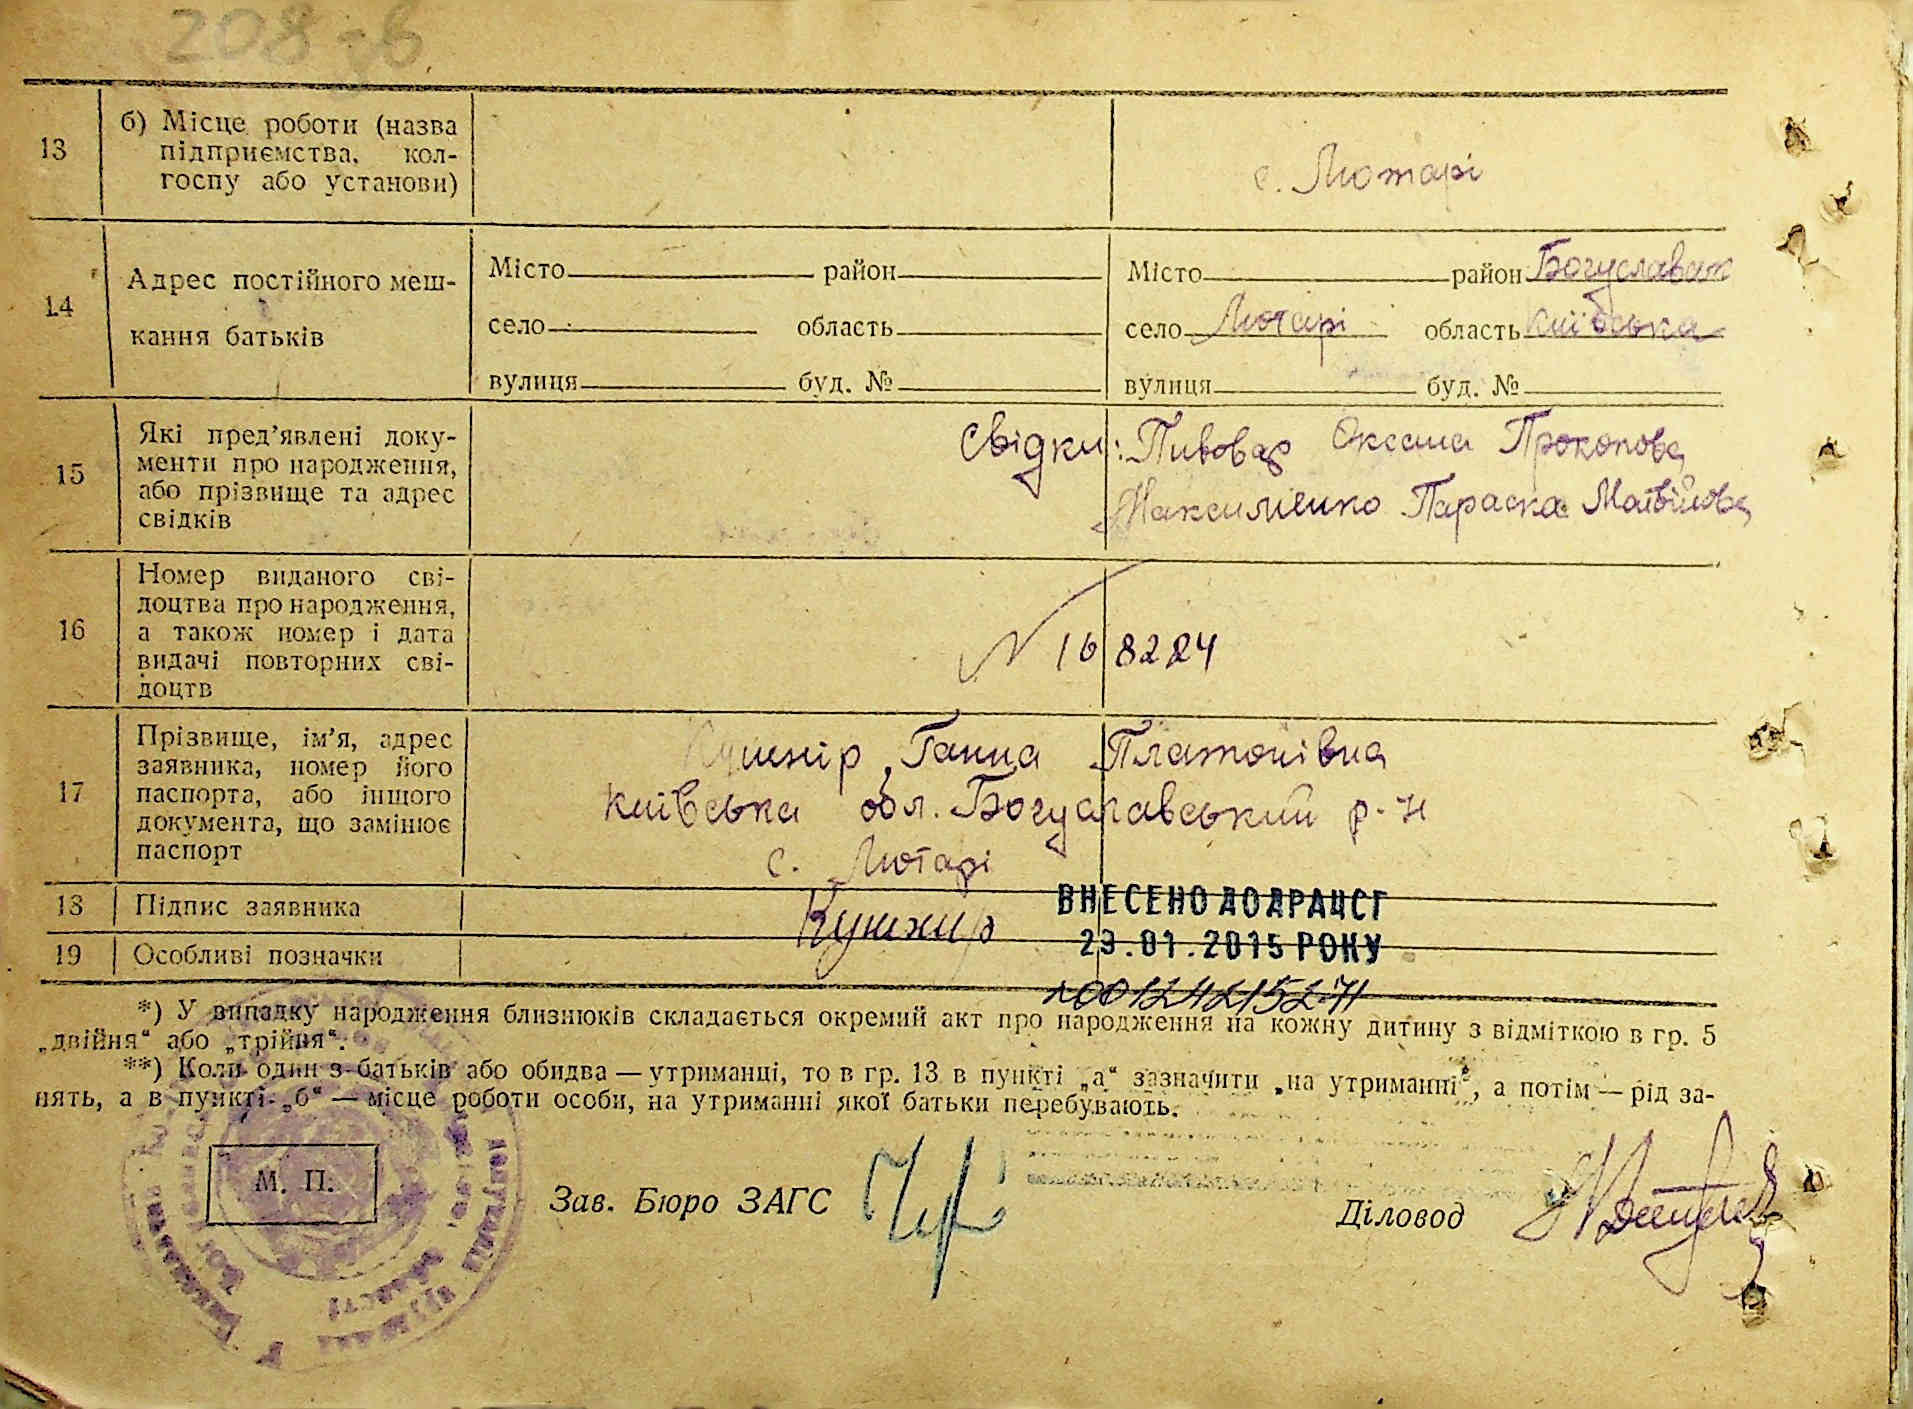 208-в
13
б) Місце роботи (назва
підприємства, кол-
госпу або установи)
с. Лютарі
14
Адрес постійного меш-
кання батьків
Місто район
село область
вулиця буд. №
Місто район Богуславськ
село Лютарі область Київська
вулиця буд. №
15
Які пред’явлені доку-
менти про народження,
або прізвище та адрес
свідків
Свідки: Пивовар Оксана Прокопова
Максименко Параска Матвійова
16
Номер виданого сві-
доцтва про народження,
а також номер і дата
видачі повторних сві-
доцтв
N 168224
17
Прізвище, ім’я, адрес
заявника, номер його
паспорта, або іншого
документа, що замінює
паспорт
Кушнір Ганна Платонівна
Київська обл. Богуславський р-н
с. Лютарі
18 Підпис заявника
Кушнир
ВНЕСЕНО ДО ДРАЦСГ
23.01.2015 РОКУ
19 Особливі позначки
*) У випадку народження близнюків складається окремий акт про народження на кожну дитину з відміткою в гр. 5
„двійня“ або „трійня“.
**) Коли один з батьків або обидва — утриманці, то в гр. 13 в пункті „а“ зазначити „на утриманні“, а потім — рід за-
нять, а в пункті „б“ — місце роботи особи, на утриманні якої батьки перебувають.
М. П.
Зав. Бюро ЗАГС
Діловод